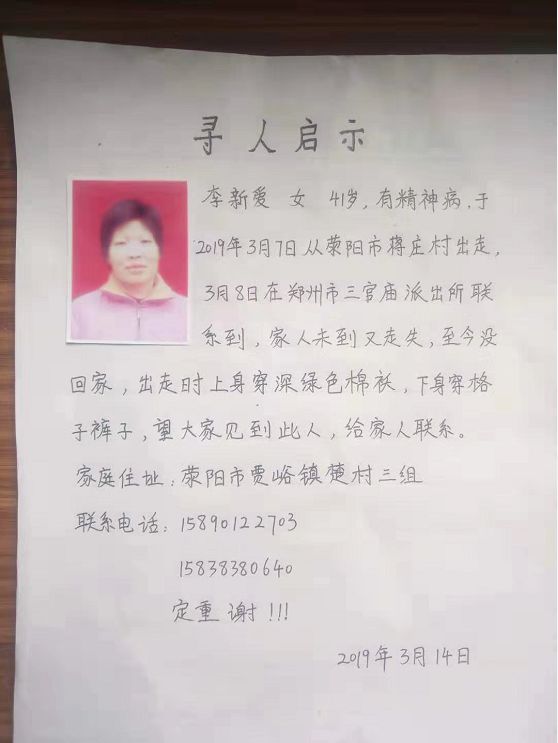 寻人启示
李新爱 女 41岁，有精神病，于
2019年3月7日从荥阳市蒋庄村出走，
3月8日在郑州市三官庙派出所联
系到，家人未到又走失，至今没
回家，出走时上身穿深绿色棉袄，下身穿格
子裤子，望大家见到此人，给家人联系。
家庭住址：荥阳市贾峪镇楚村三组
联系电话：15890122703
15838380640
定重谢！！！
2019年3月14日